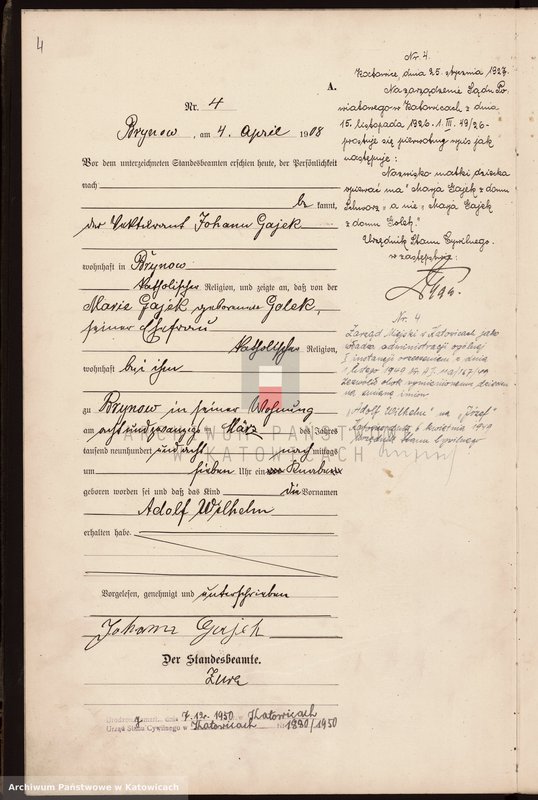 4
A.
Nr. 4
Brynow, am 4. April 1908
Vor dem unterzeichneten Standesbeamten erschien heute, der Persönlichkeit
nach
be kannt,
der Johann Gajek
wohnhaft in Brynow
katholischer Religion, und zeigte an, daß von der
Marie Gajek geborenen Golek,
seiner Ehefrau
katholischer Religion,
wohnhaft bei ihm
zu Brynow in seiner Wohnung
am acht und zwanzigsten März des Jahres
tausend neunhundert und acht nach mittags
um sieben Uhr ein Knabe
geboren worden sei und daß das Kind die Vornamen
Adolf Wilhelm
erhalten habe.
Vorgelesen, genehmigt und unterschrieben
Johann Gajek
Der Standesbeamte.
Zura
7.12. 1950 Katowicach
Urząd Stanu Cywilnego w Katowicach 1890/1950
Nr. 4.
Katowice, dnia 25. stycznia 1927.
Na zarządzenie Sądu Po
wiatowego w Katowicach z dnia
15. listopada 1926. 1. III. 49/26-
prostuje się pierwotny wpis jak
następuje:
Nazwisko matki dziecka
opiewać ma "Marja Gajek z domu
Schwarz" a nie "Marja Gajek
z domu Golek."
Urzędnik Stanu Cywilnego.
w zastępstwie:
Nr. 4
Zarząd Miejski w Katowicach jako
władza administracji ogólnej
I instancji orzeczeniem z dnia
1 lutego 1949
zezwolił obok wymienionemu dziecku
na zmianę imion
"Adolf Wilhelm" na "Józef"
Katowice, dnia 6 kwietnia 1949
Urzędnik Stanu Cywilnego
ARCHIWUM PAŃSTWOWE
W KATOWICACH
Archiwum Państwowe w Katowicach